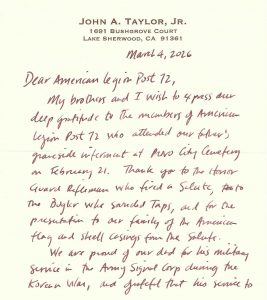 JOHN A. TAYLOR, JR.
1691 BUSHGROVE COURT
LAKE SHERWOOD, CA 91361
March 4, 2026
Dear American Legion Post 72,
My brothers and I wish to express our
deep gratitude to the members of American
Legion Post 72 who attended our father's
graveside interment at Provo City Cemetery
on February 21. Thank you to the Honor
Guard Riflemen who fired a Salute, to
the Bugler who sounded Taps, and for the
presentation to our family of the American
flag and shell casings from the Salute.
We are proud of our dad for his military
service in the Army Signal Corp during the
Korean War, and grateful that his service to